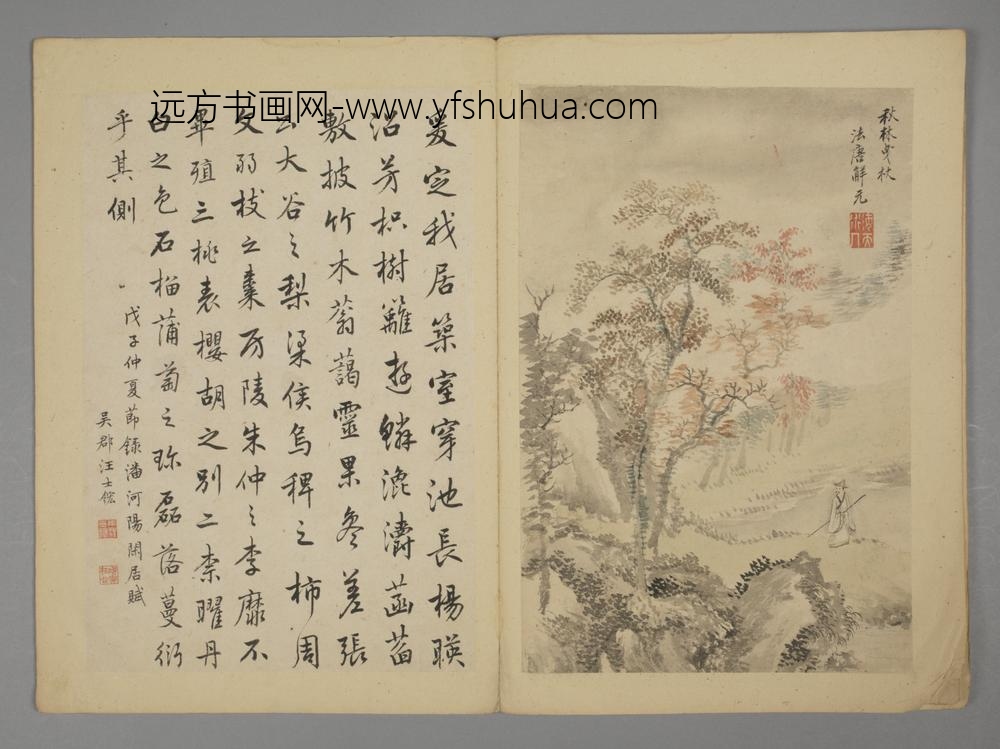 远方书画网-www.yfshuhua.com
秋林曳杖
法唐解元
爰定我居築室穿池長楊暎
沼芳枳樹籬遊鱗瀺灂菡萏
敷披竹木蓊藹靈果参差張
公大谷之梨梁侯烏椑之柿周
文弱枝之棗房陵朱仲之李靡不
畢殖三桃表櫻胡之別二柰曜丹
白之色石榴蒲萄之珎磊落蔓衍
乎其側
戊子仲夏節錄潘河陽閑居賦
吳郡汪士鋐